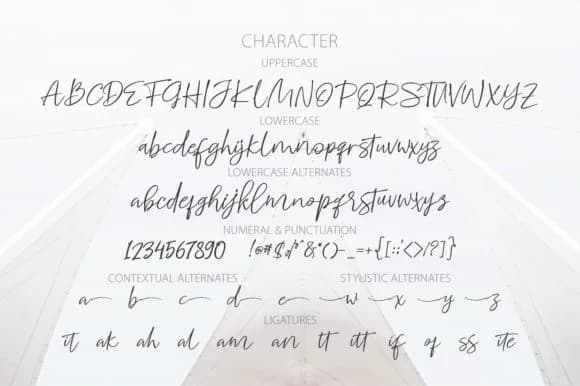 CHARACTER
UPPERCASE
ABCDEFGHIJKLMNOPQRSTUVWXYZ
LOWERCASE
abcdefghijklmnopqrstuvwxyz
LOWERCASE ALTERNATES
abcdefghijklmnopqrstuvwxyz
NUMERAL & PUNCTUATION
1234567890 !@#$%^&*()-_=+{[:;'<>/?]}
CONTEXTUAL ALTERNATES STYLISTIC ALTERNATES
a b c d e w x y z
LIGATURES
it ak ah al am an tt itt if of ss ite